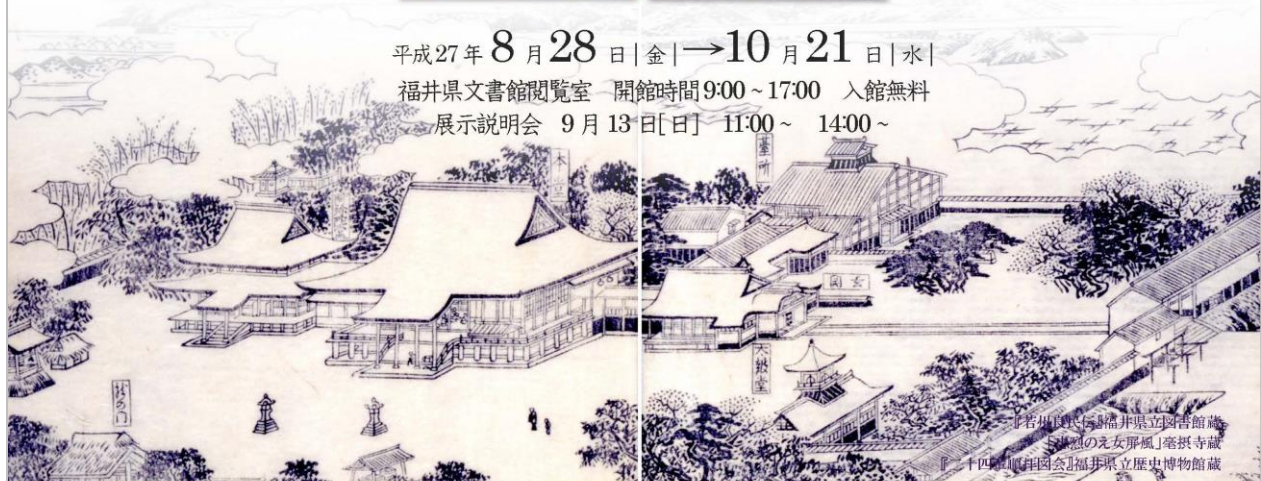 平成27年 8月28日|金|→10月21日|水|
福井県文書館閲覧室 開館時間9:00~17:00 入館無料
展示説明会 9月13日[日] 11:00~ 14:00~
本堂
臺所
玄関
大鼓堂
『若州良民伝』福井県立図書館蔵
のえ女屏風」毫摂寺蔵
『二十四輩順拝図会』福井県立歴史博物館蔵